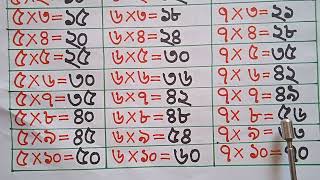 ৫×৩=১৫ ৬×৩=১৮ ৭×৩=২১
৫×৪=২০ ৬×৪=২৪ ৭×৪=২৮
৫×৫=২৫ ৬×৫=৩০ ৭×৫=৩৫
৫×৬=৩০ ৬×৬=৩৬ ৭×৬=৪২
৫×৭=৩৫ ৬×৭=৪২ ৭×৭=৪৯
৫×৮=৪০ ৬×৮=৪৮ ৭×৮=৫৬
৫×৯=৪৫ ৬×৯=৫৪ ৭×৯=৬৩
৫×১০=৫০ ৬×১০=৬০ ৭×১০=৭০